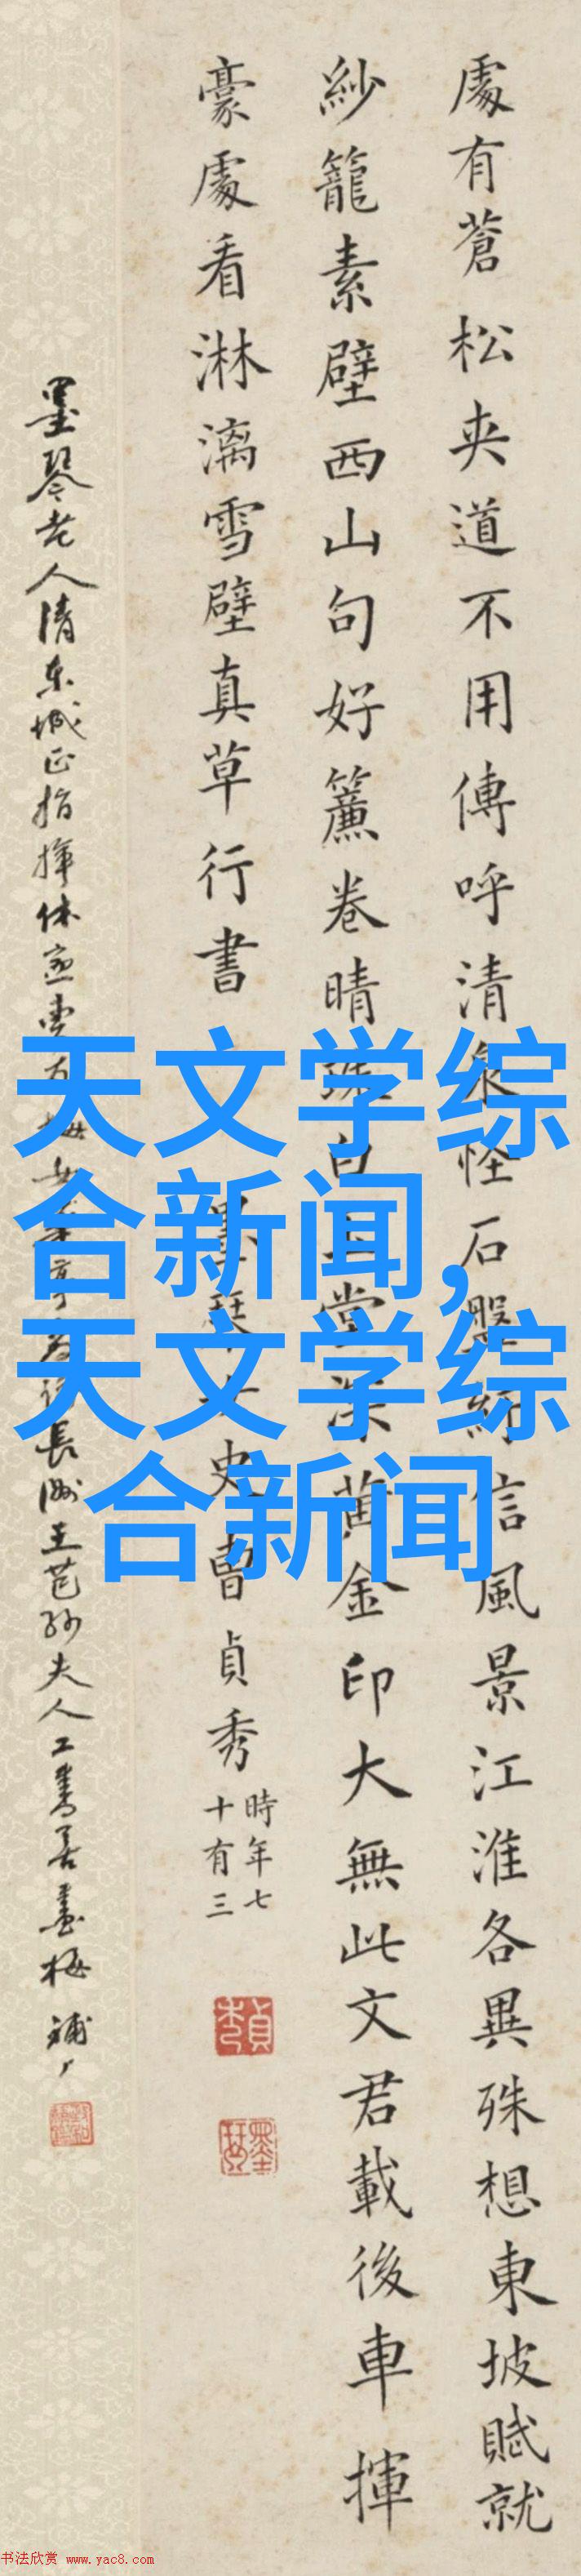 處有蒼松夾道不用傳呼清泉怪石盤紆信風景江淮各異殊想東坡賦就
紗籠素壁西山句好簾卷晴珠白玉堂深黃金印大無此文君載後車揮
豪處看淋漓雪壁真草行書
墨琴女史曹貞秀
時年七
十有三
墨琴老人清东城正指揮休 長洲王芑孙夫人工書善畫梅
天文学综
合新闻,
天文学综
合新闻
书法欣赏 www.yac8.com